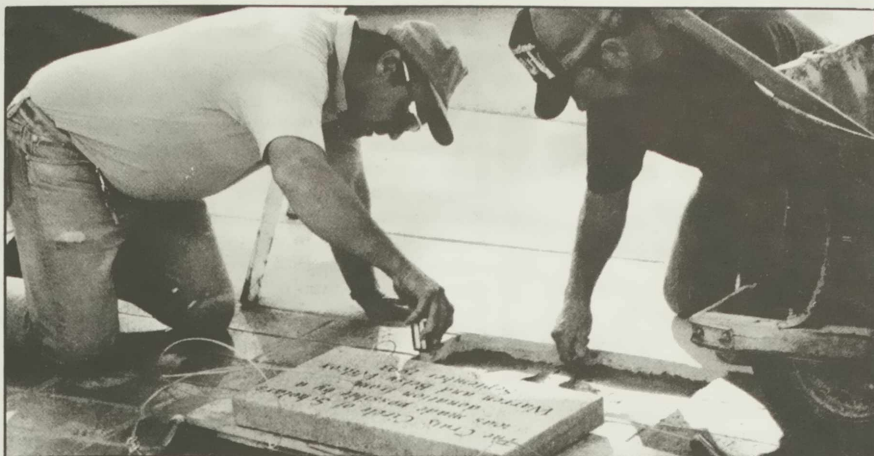 The Circle of Scholars
was made possible by a
donation from
Warren and Betsy
September